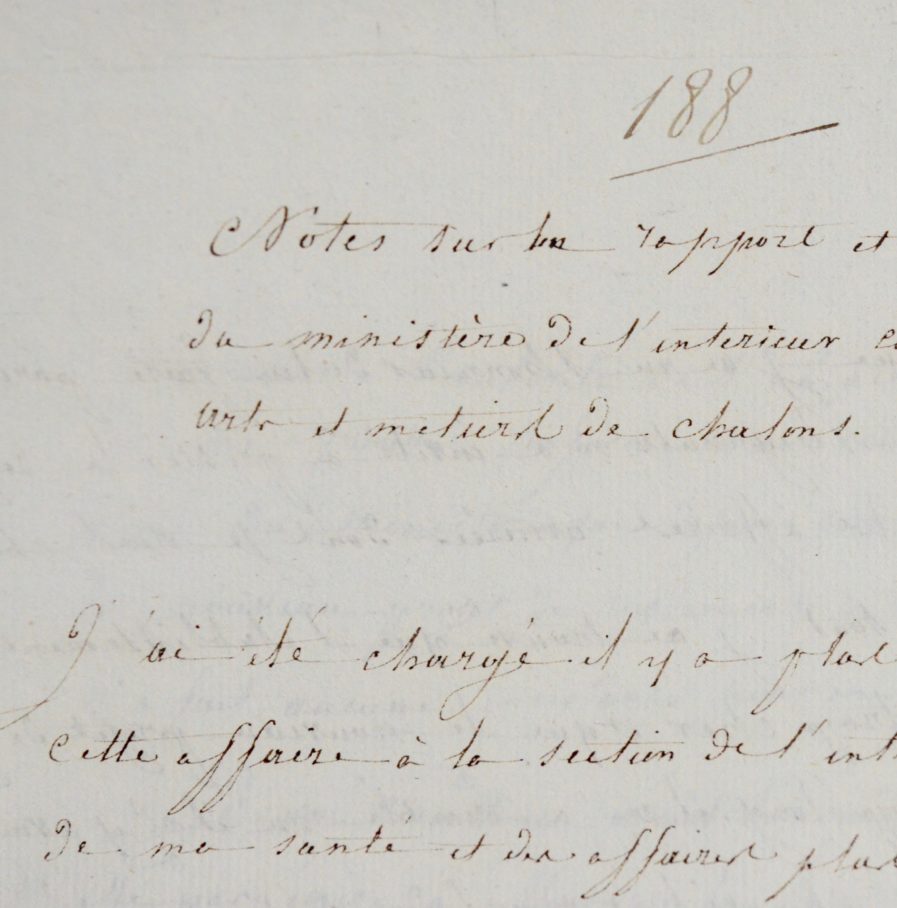 188
Notes sur les rapport et
du ministère de l'interieur
arts et metiers de chalons.
J'ai été chargé il y a plus
cette affaire à la section de l'int
de ma santé et des affaires plus